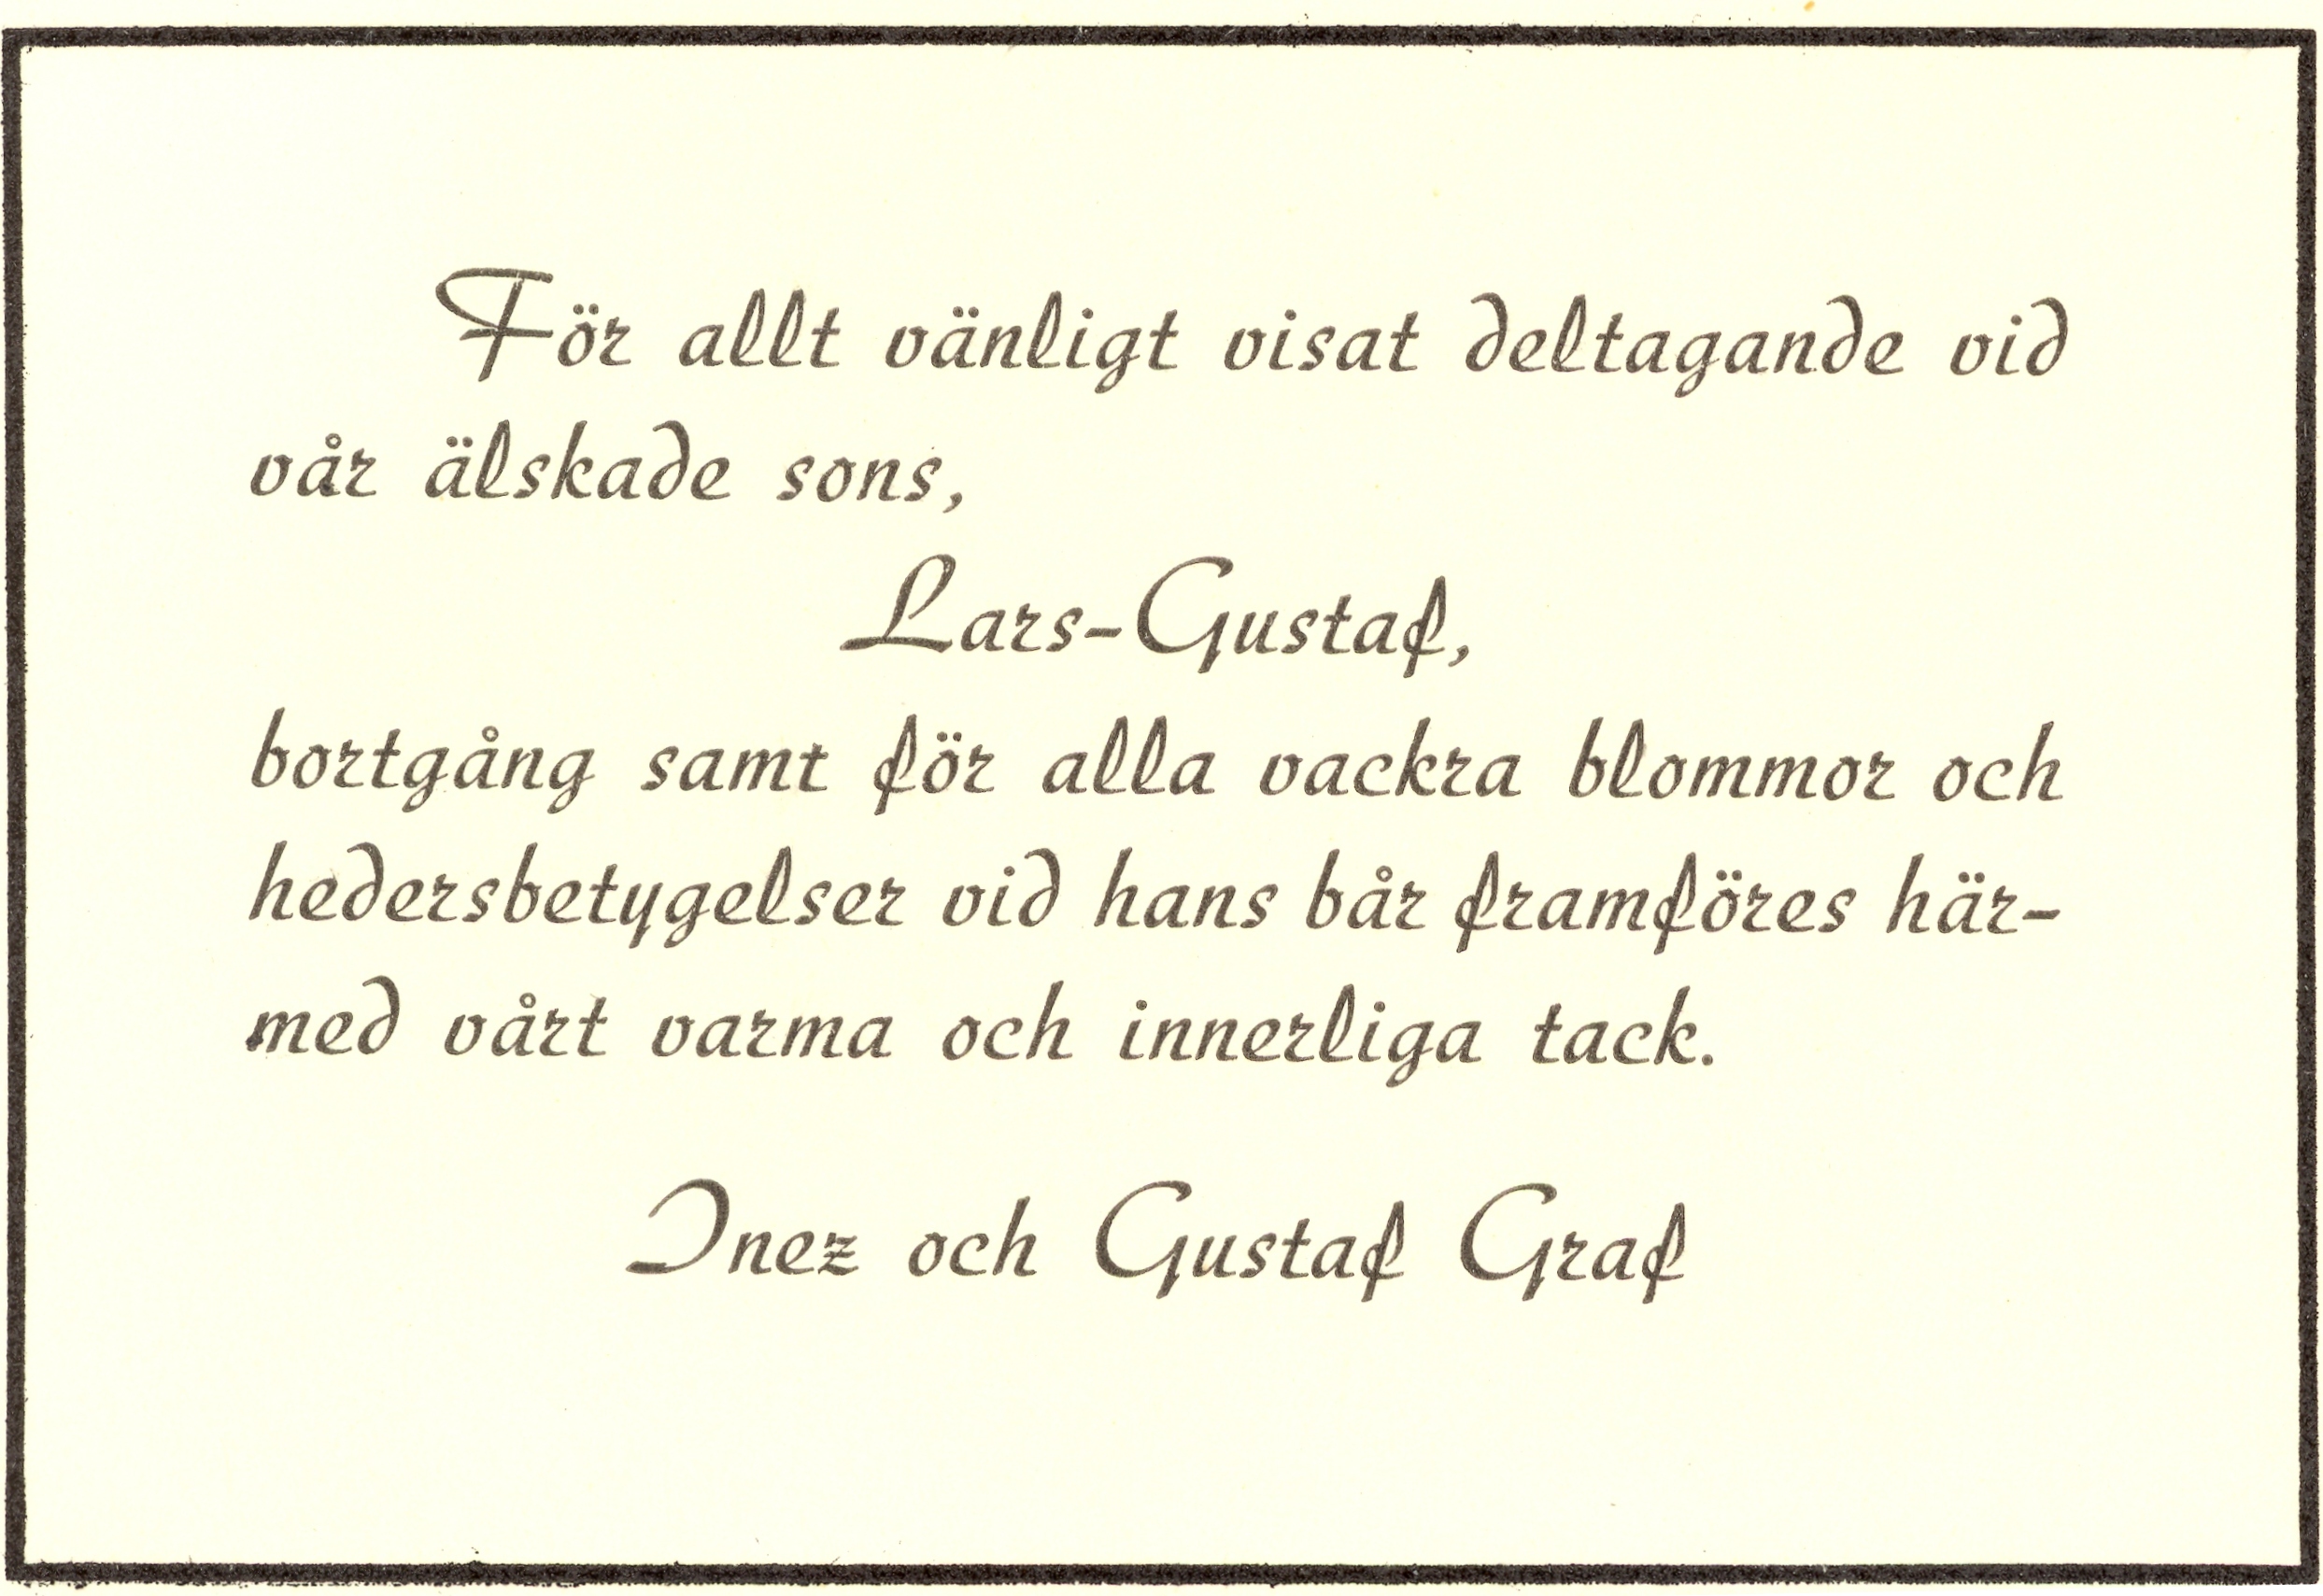 För allt vänligt visat deltagande vid
vår älskade sons,
Lars-Gustaf,
bortgång samt för alla vackra blommor och
hedersbetygelser vid hans bår framföres här-
med vårt varma och innerliga tack.
Inez och Gustaf Graf